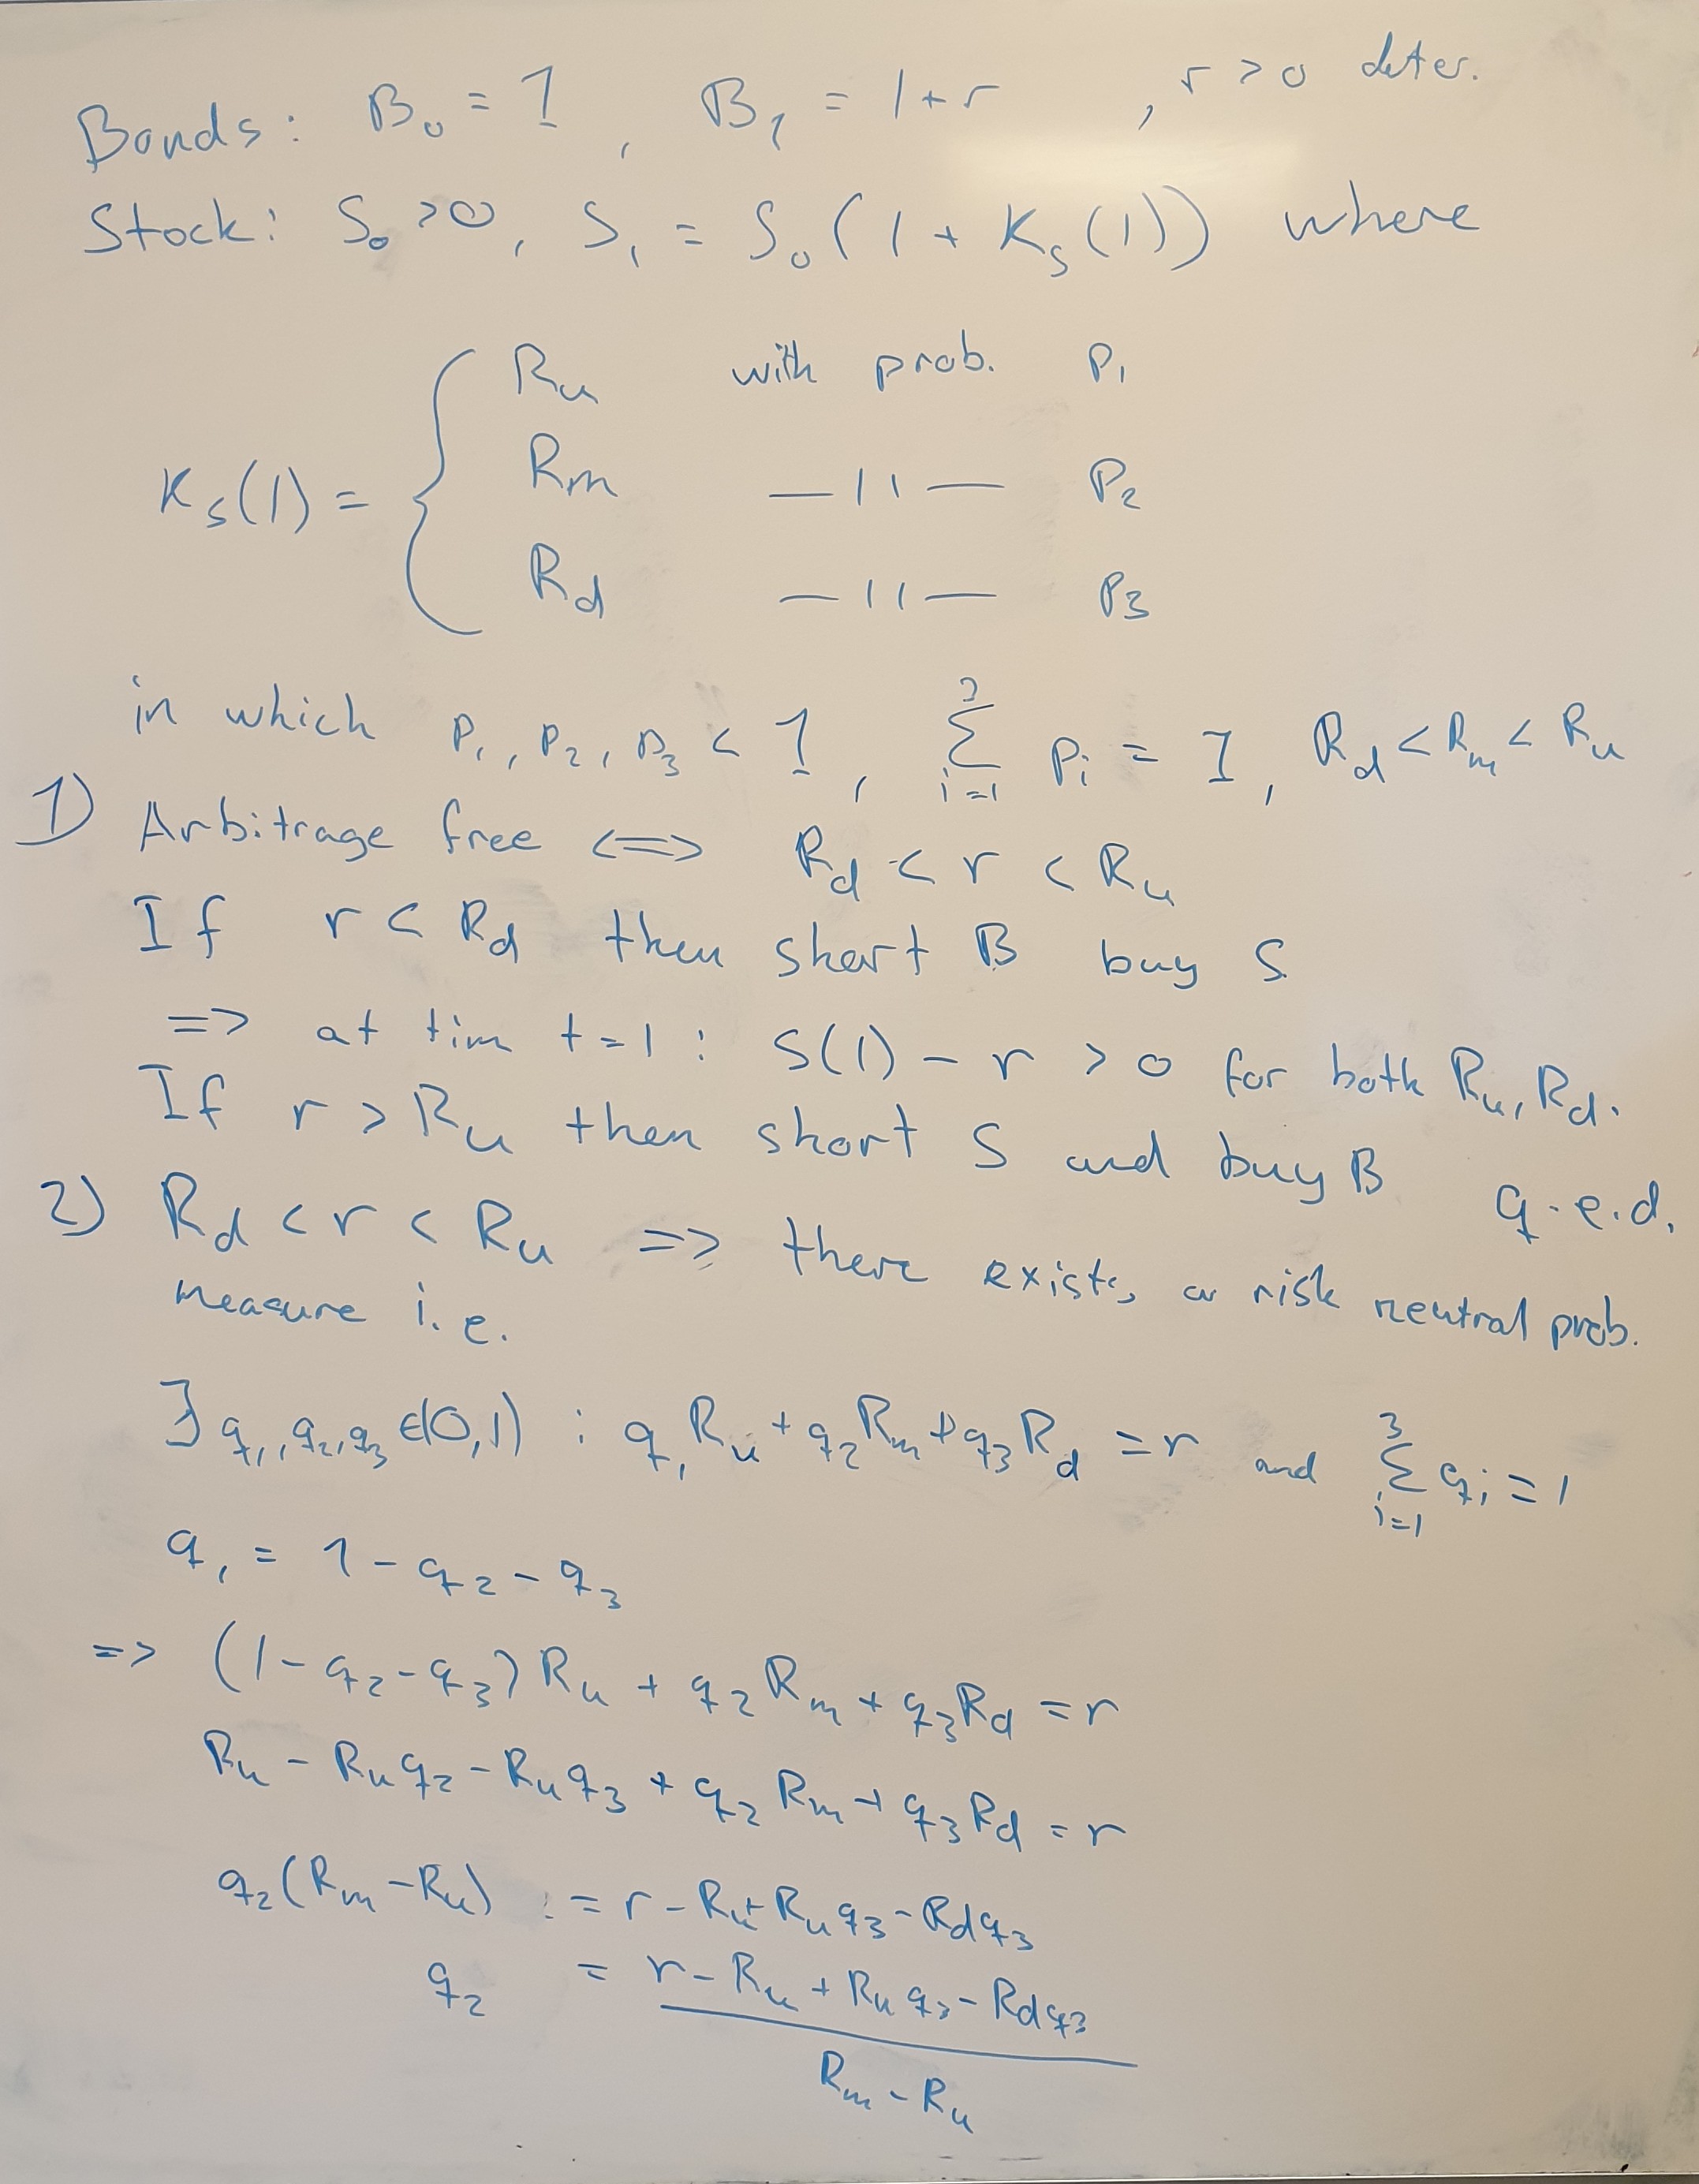 Bonds: B₀ = 1, B₁ = 1+r, r > 0 deter.
Stock: S₀ > 0, S₁ = S₀(1 + K_S(1)) where
K_S(1) = {
R_u with prob. P₁
R_m —11— P₂
R_d —11— P₃
in which P₁, P₂, P₃ < 1, Σ_{i=1}^{3} P_i = 1, R_d < R_m < R_u
1) Arbitrage free <=> R_d < r < R_u
If r < R_d then short B buy S
=> at tim t=1 : S(1) - r > 0 for both R_u, R_d.
If r > R_u then short S and buy B
q.e.d.
2) R_d < r < R_u => there exists a risk neutral prob.
measure i.e.
∃ q₁, q₂, q₃ ∈ (0,1) : q₁R_u + q₂R_m + q₃R_d = r and Σ_{i=1}^{3} q_i = 1
q₁ = 1 - q₂ - q₃
=> (1 - q₂ - q₃)R_u + q₂R_m + q₃R_d = r
R_u - R_u q₂ - R_u q₃ + q₂R_m + q₃R_d = r
q₂(R_m - R_u) = r - R_u + R_u q₃ - R_d q₃
q₂ = r - R_u + R_u q₃ - R_d q₃
R_m - R_u